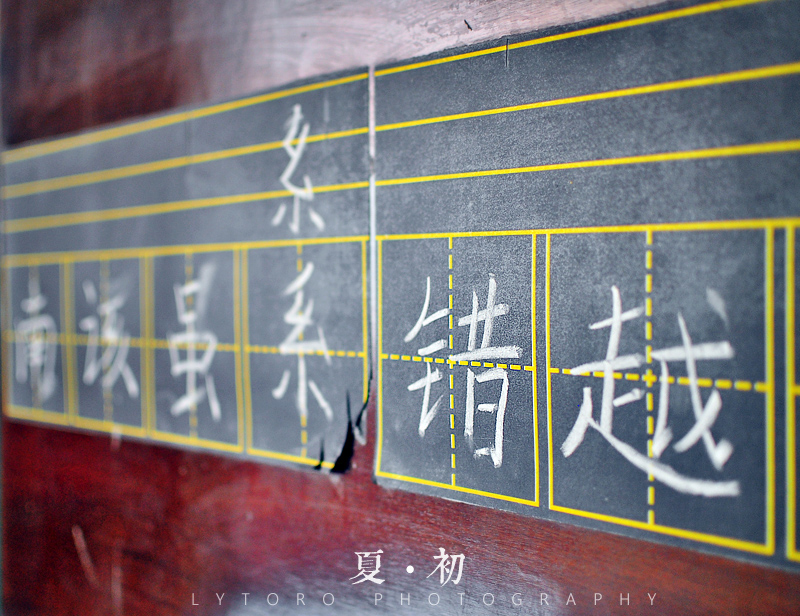 糸
南该虽系错越
夏·初
LYTORO PHOTOGRAPHY